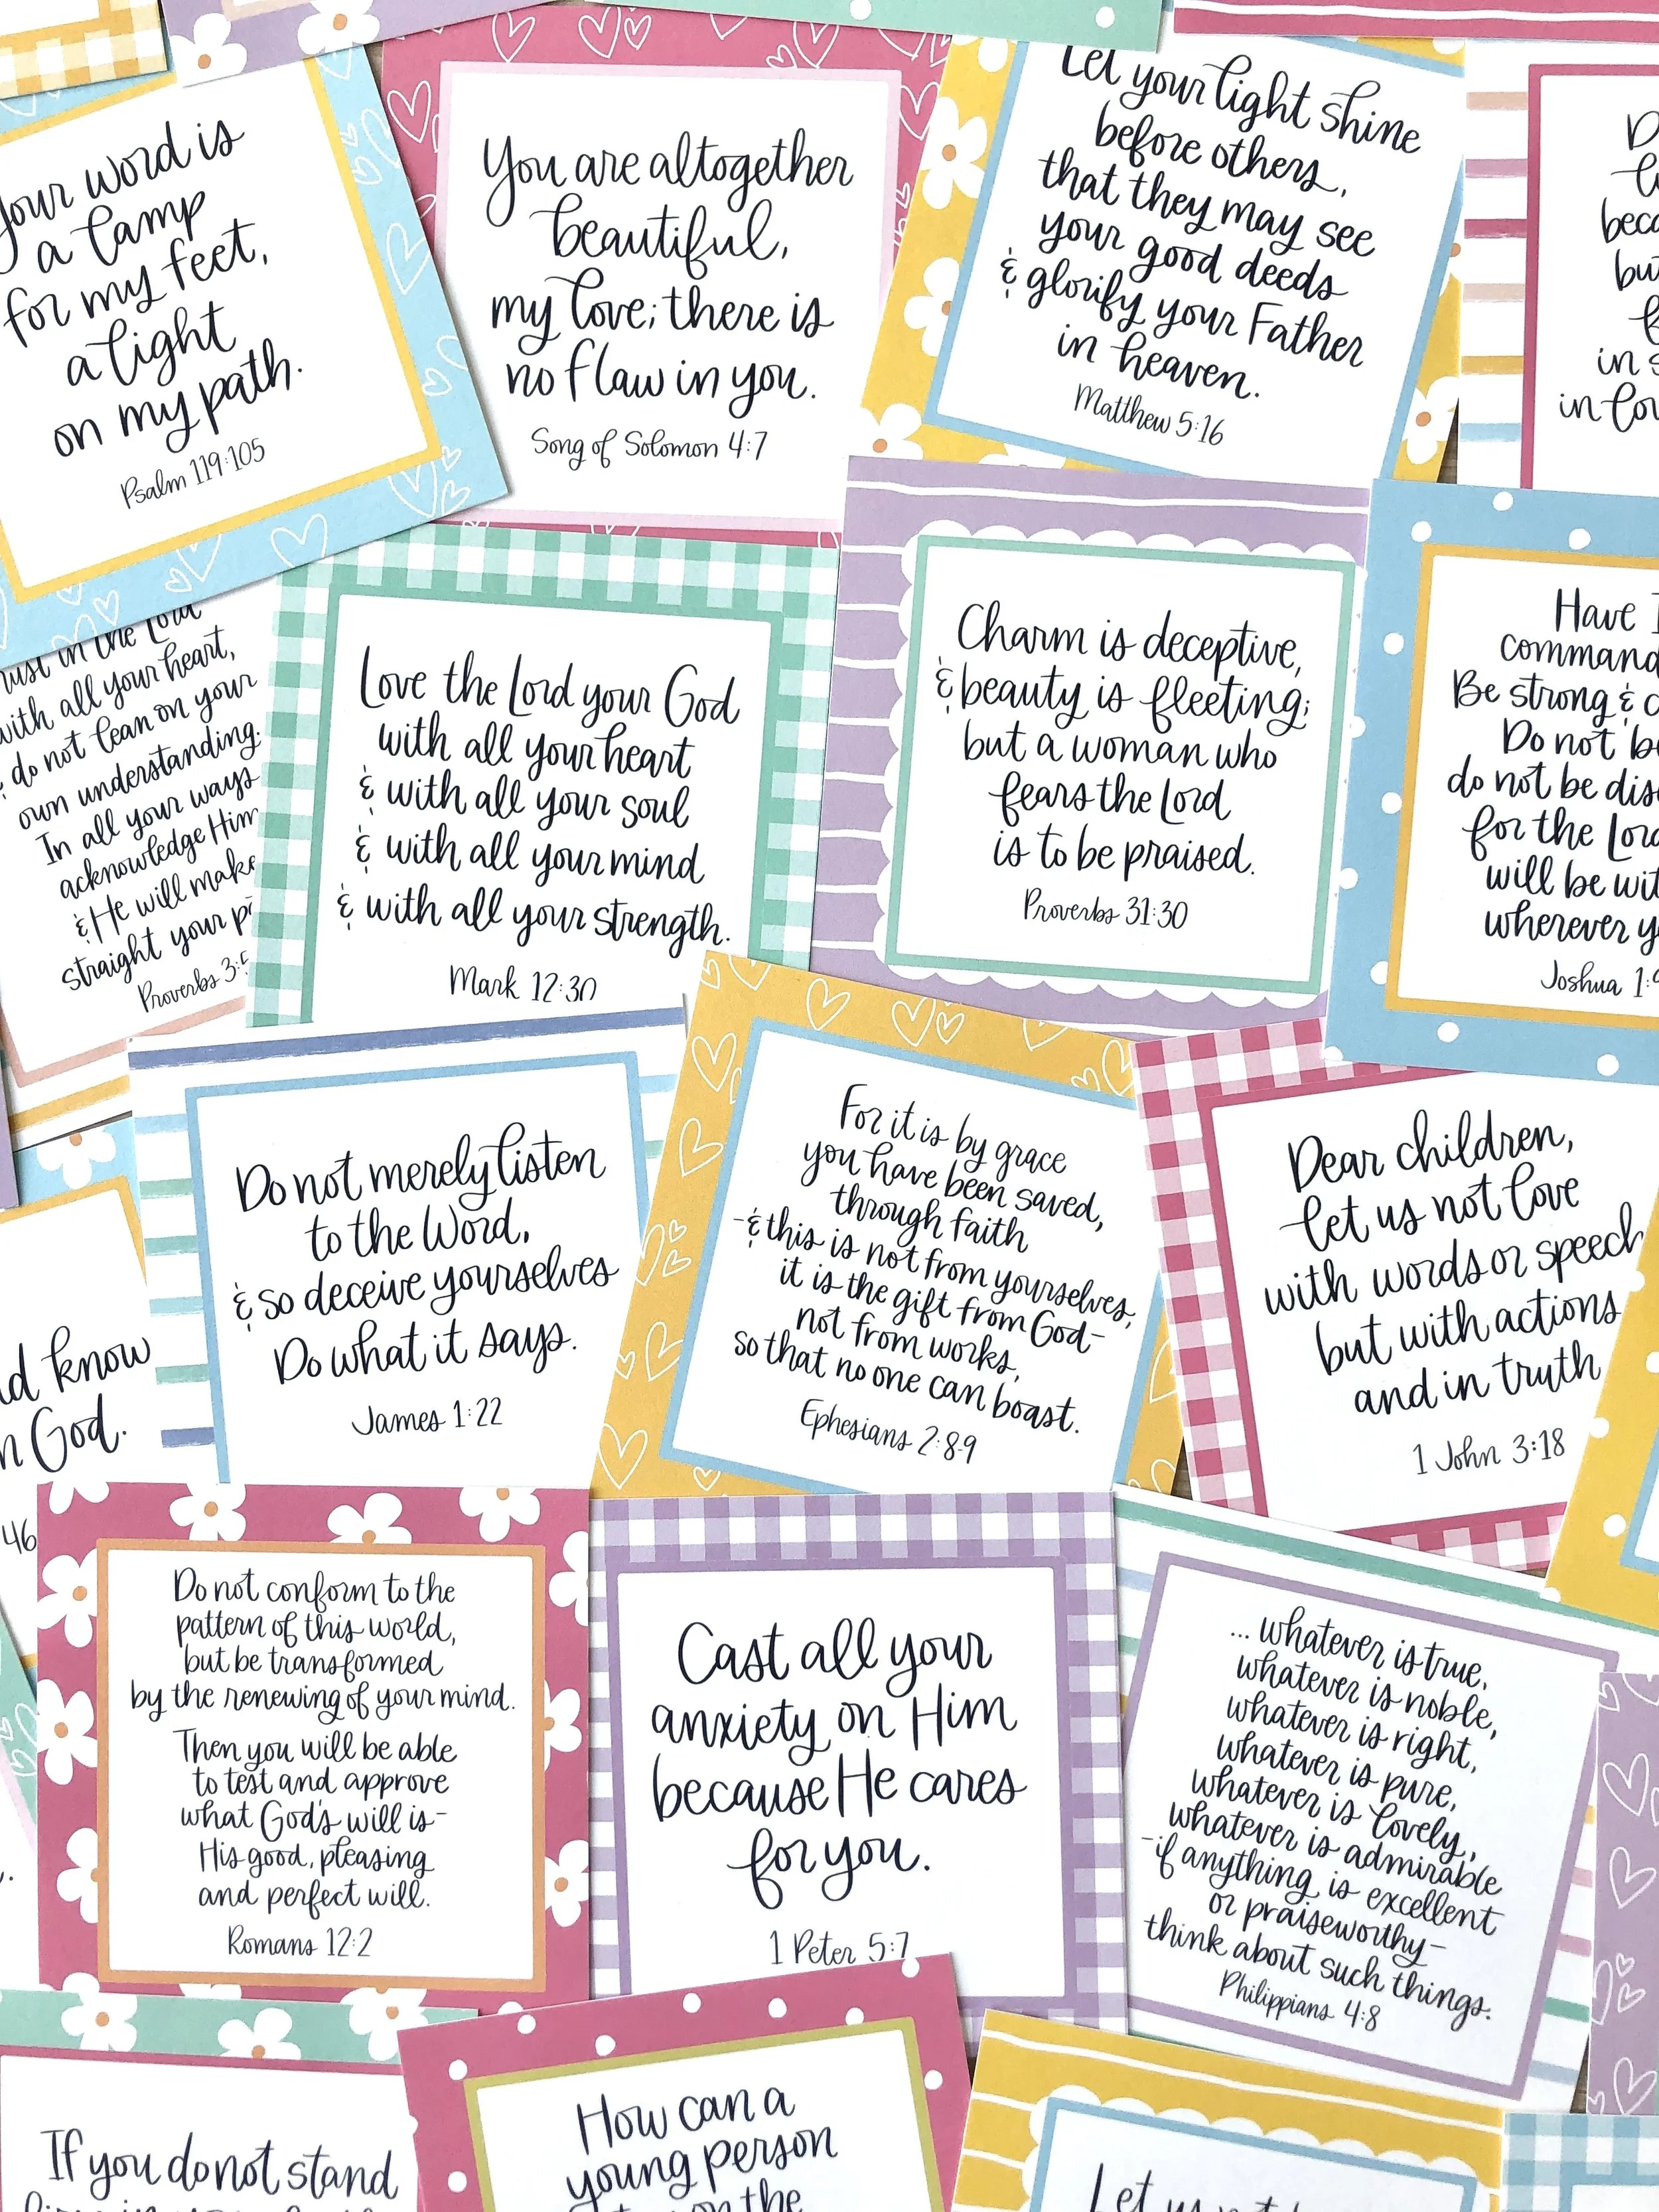 your word is
a lamp
for my feet,
a light
on my path.
Psalm 119:105
You are altogether
beautiful,
my love; there is
no flaw in you.
Song of Solomon 4:7
Let your light shine
before others,
that they may see
your good deeds
& glorify your Father
in heaven.
Matthew 5:16
but
in
in
in the Lord
with all your heart,
& do not lean on your
own understanding.
In all your ways
acknowledge Him
& He will make
straight your
Proverbs 3:5
Love the Lord your God
with all your heart
& with all your soul
& with all your mind
& with all your strength.
Mark 12:30
Charm is deceptive,
& beauty is fleeting;
but a woman who
fears the Lord
is to be praised.
Proverbs 31:30
Have I
command
Be strong &
Do not be
do not be
for the Lord
will be
wherever
Joshua 1:9
know
God.
46
Do not merely listen
to the Word,
& so deceive yourselves
Do what it says.
James 1:22
For it is by grace
you have been saved,
through faith
-& this is not from yourselves,
it is the gift from God-
not from works,
so that no one can boast.
Ephesians 2:8-9
Dear children,
let us not love
with words or speech
but with actions
and in truth
1 John 3:18
Do not conform to the
pattern of this world,
but be transformed
by the renewing of your mind.
Then you will be able
to test and approve
what God's will is-
His good, pleasing
and perfect will.
Romans 12:2
Cast all your
anxiety on Him
because He cares
for you.
1 Peter 5:7
... whatever is true,
whatever is noble,
whatever is right,
whatever is pure,
whatever is lovely,
whatever is admirable
-if anything is excellent
or praiseworthy-
think about such things.
Philippians 4:8
If you do not stand
How can a
young person
the
Let us not